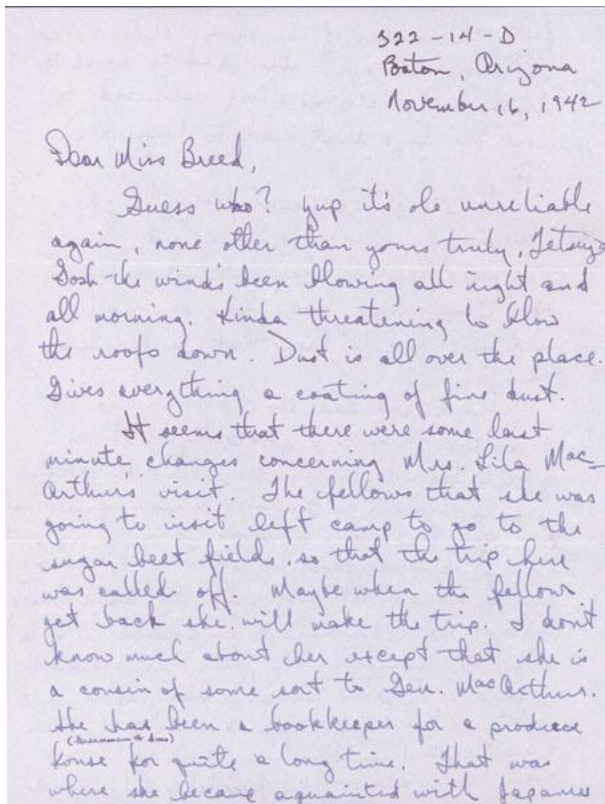 322-14-D
Poston, Arizona
November 16, 1942
Dear Miss Breed,
Guess who? Yup it's ole unreliable
again, none other than yours truly, Tetsuzo
Gosh the winds been blowing all night and
all morning. Kinda threatening to blow
the roofs down. Dust is all over the place.
Gives everything a coating of fine dust.
It seems that there were some last
minute changes concerning Mrs. Lila Mac-
Arthur's visit. The fellows that she was
going to visit left camp to go to the
sugar beet fields, so that the trip here
was called off. Maybe when the fellows
get back she will make the trip. I don't
know much about her except that she is
a cousin of some sort to Gen. MacArthur.
She has been a bookkeeper for a produce
house for quite a long time. That was
where she became aquainted with Japanese